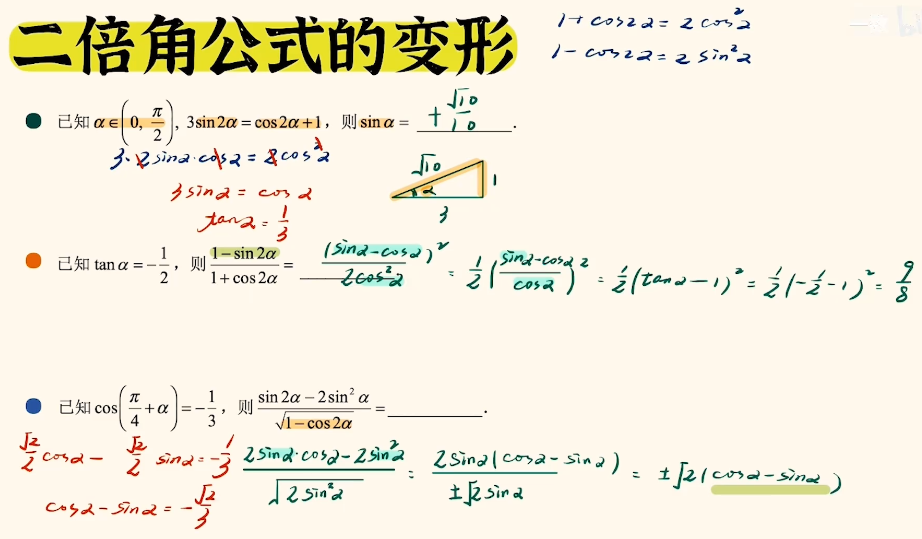 二倍角公式的变形
1+cos2α=2cos²α
1-cos2α=2sin²α
已知 α∈(0, π/2), 3sin2α=cos2α+1, 则 sinα= +√10/10 .
3·2sinα·cosα=2cos²α
3sinα=cosα
tanα=1/3
√10
α
1
3
已知 tanα=-1/2, 则 (1-sin2α)/(1+cos2α)= (sinα-cosα)²/2cos²α = 1/2((sinα-cosα)/cosα)² = 1/2(tanα-1)² = 1/2(-1/2-1)² = 9/8
已知 cos(π/4+α)=-1/3, 则 (sin2α-2sin²α)/√(1-cos2α)=________.
√2/2 cosα - √2/2 sinα=-1/3
cosα-sinα=-√2/3
(2sinα·cosα-2sin²α)/√(2sin²α) = 2sinα(cosα-sinα)/(±√2sinα) = ±√2(cosα-sinα)